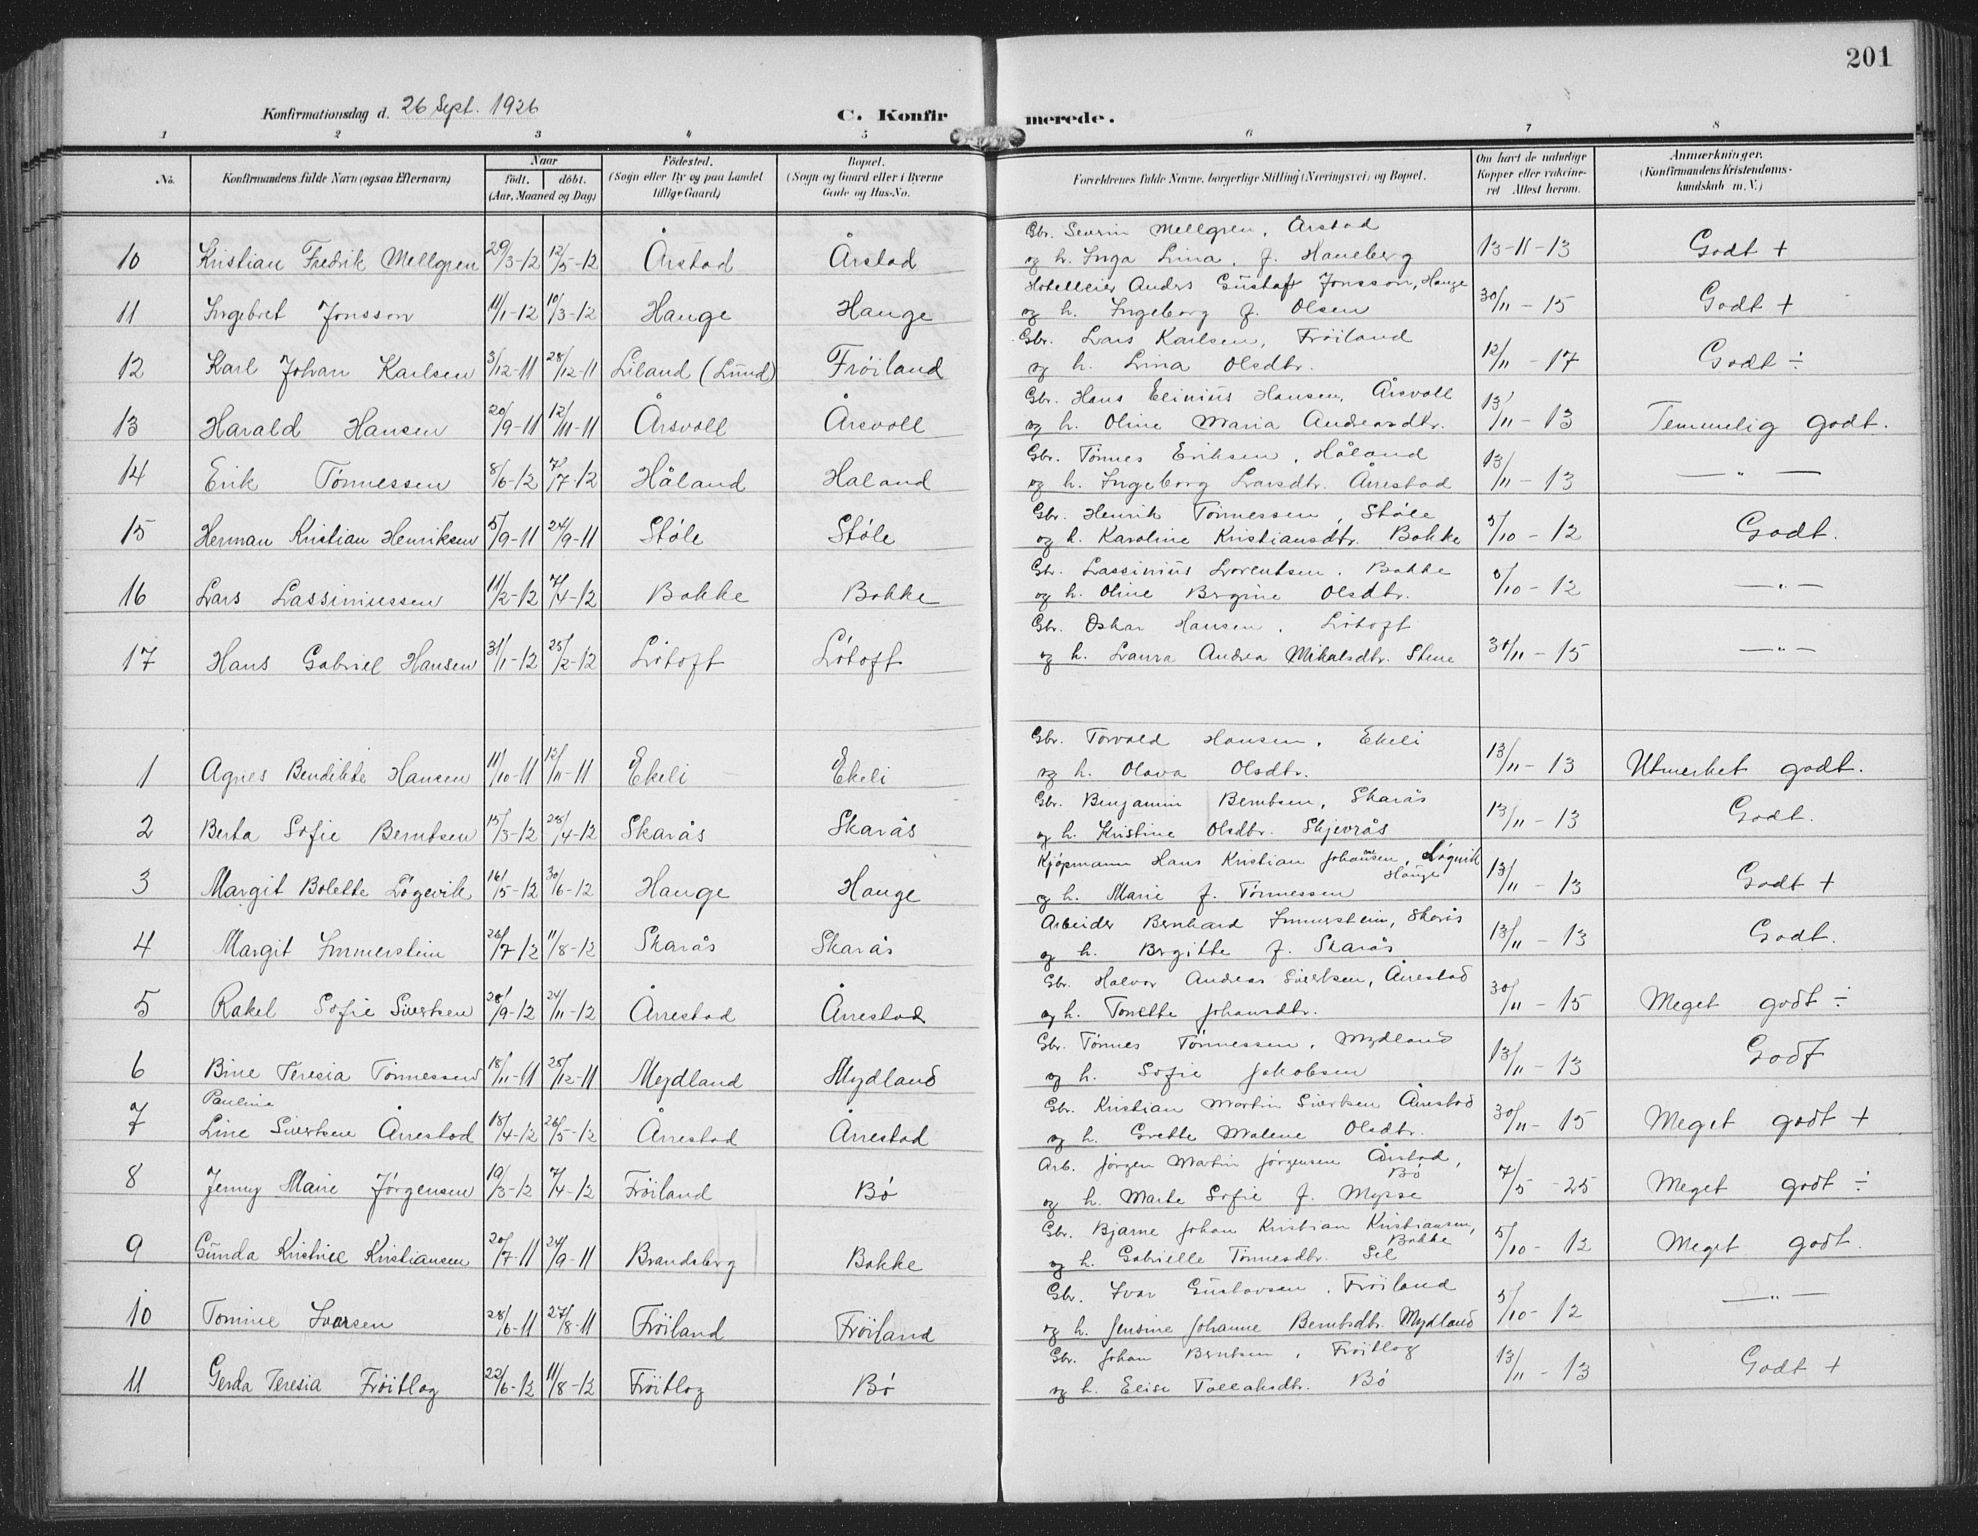 201
Konfirmationsdag d. 26 Sept. 1926 C. Konfirmerede.
1 2 3 4 5 6 7 8
No. Konfirmandens fulde Navn (ogsaa Efternavn) Naar født. døbt. (Aar, Maaned og Dag) Fødested. (Sogn eller By og paa Landet tillige Gaard) Bopæl. (Sogn og Gaard eller i Byerne Gade og Hus-No. Forældrenes fulde Navne, borgerlige Stilling (Næringsvei) og Bopæl. Om havt de naturlige Kopper eller vakcineret Attest herom. Anmærkninger. (Konfirmandens Kristendomskundskab m. V.)
Gbr. Severin Mellgren, Årstad
10 Kristian Fredrik Mellgren 29/3-12 12/5-12 Årstad Årstad og h. Inga Lina, f. Haneberg 13-11-13 Godt +
Hotelleier Anders Gustaf Jonsson, Hauge
11 Ingebret Jonsson 11/1-12 10/3-12 Hauge Hauge og h. Ingeborg f. Olsen 30/11-15 Godt +
Gbr. Lars Karlsen, Frøiland
12 Karl Johan Karlsen 3/12-11 28/12-11 Liland (Lund) Frøiland og h. Lina Olsdtr. 12/11-17 Godt ÷
Gbr. Hans Elinius Hansen, Årsvoll
13 Harald Hansen 20/9-11 12/11-11 Årsvoll Årsvoll og h. Oline Maria Andreasdtr. 13/11-13 Temmelig godt.
Gbr. Tønnes Eriksen, Håland
14 Erik Tønnessen 8/6-12 7/7-12 Håland Haland og h. Ingeborg Larsdtr. Årrestad 13/11-13 — " —
Gbr. Henrik Tønnessen, Støle
15 Herman Kristian Henriksen 5/9-11 24/9-11 Støle Støle og h. Karoline Kristiansdtr. Bakke 5/10-12 Godt.
Gbr. Lassinius Lorentsen. Bakke
16 Lars Lassiniussen 11/2-12 7/4-12 Bakke Bakke og h. Oline Bergine Olsdtr. 5/10-12 — " —
Gbr. Oskar Hansen, Løtoft
17 Hans Gabriel Hansen 31/1-12 25/2-12 Løtoft Løtoft og h. Laura Andrea Mikalsdtr. Stene 30/11-15 — " —
Gbr. Torvald Hansen, Ekeli
1 Agnes Bendikte Hansen 11/10-11 12/11-11 Ekeli Ekeli og h. Olava Olsdtr. 13/11-13 Utmerket godt.
Gbr. Benjamin Berntsen, Skarås
2 Berta Sofie Berntsen 15/3-12 28/4-12 Skarås Skarås og h. Kristine Olsdtr. Skjevrås 13/11-13 Godt.
Kjøpmann Hans Kristian Johansen, Løgevik
Hauge
3 Margit Bolette Løgevik 16/5-12 30/6-12 Hauge Hauge og h. Marie f. Tønnessen 13/11-13 Godt +
Arbeider Bernhard Immerstein, Skarås
4 Margit Immerstein 26/7-12 11/8-12 Skarås Skarås og h. Bergitte f. Skarås 13/11-13 Godt.
Gbr. Halvor Andreas Sivertsen, Årrestad
5 Rakel Sofie Sivertsen 28/9-12 24/11-12 Årrestad Årrestad og h. Tonette Johansdtr. 30/11-15 Meget godt ÷
Gbr. Tønnes Tønnessen, Mydland
6 Bine Teresia Tønnessen 18/11-11 25/12-11 Mydland Mydland og h. Sofie Jakobsen 13/11-13 Godt
Paulina
Gbr. Kristian Martin Sivertsen Årrestad
7 Line Sivertsen Årrestad 18/4-12 26/5-12 Årrestad Årrestad og h. Grette Malene Olsdtr. 30/11-15 Meget godt +
Arb. Jørgen Martin Jørgensen Årstad,
Bø
8 Jenny Marie Jørgensen 19/3-12 7/4-12 Frøiland Bø og h. Marte Sofie f. Mysse 7/5-25 Meget godt ÷
Gbr. Bjarne Johan Kristian Kristiansen,
Bakke
9 Gunda Kristine Kristiansen 20/7-11 24/9-11 Brandsberg Bakke og h. Gabrielle Tønnesdtr. Sel 5/10-12 Meget godt.
Gbr. Ivar Gustavsen, Frøiland
10 Tomine Ivarsen 28/6-11 27/8-11 Frøiland Frøiland og h. Jensine Johanne Berntsdtr. Mydland 5/10-12 — " —
Gbr. Johan Berntsen, Frøitlog
11 Gerda Teresia Frøitlog 22/6-12 11/8-12 Frøitlog Bø og h. Elise Tollaksdtr. Bø 13/11-13 Godt +